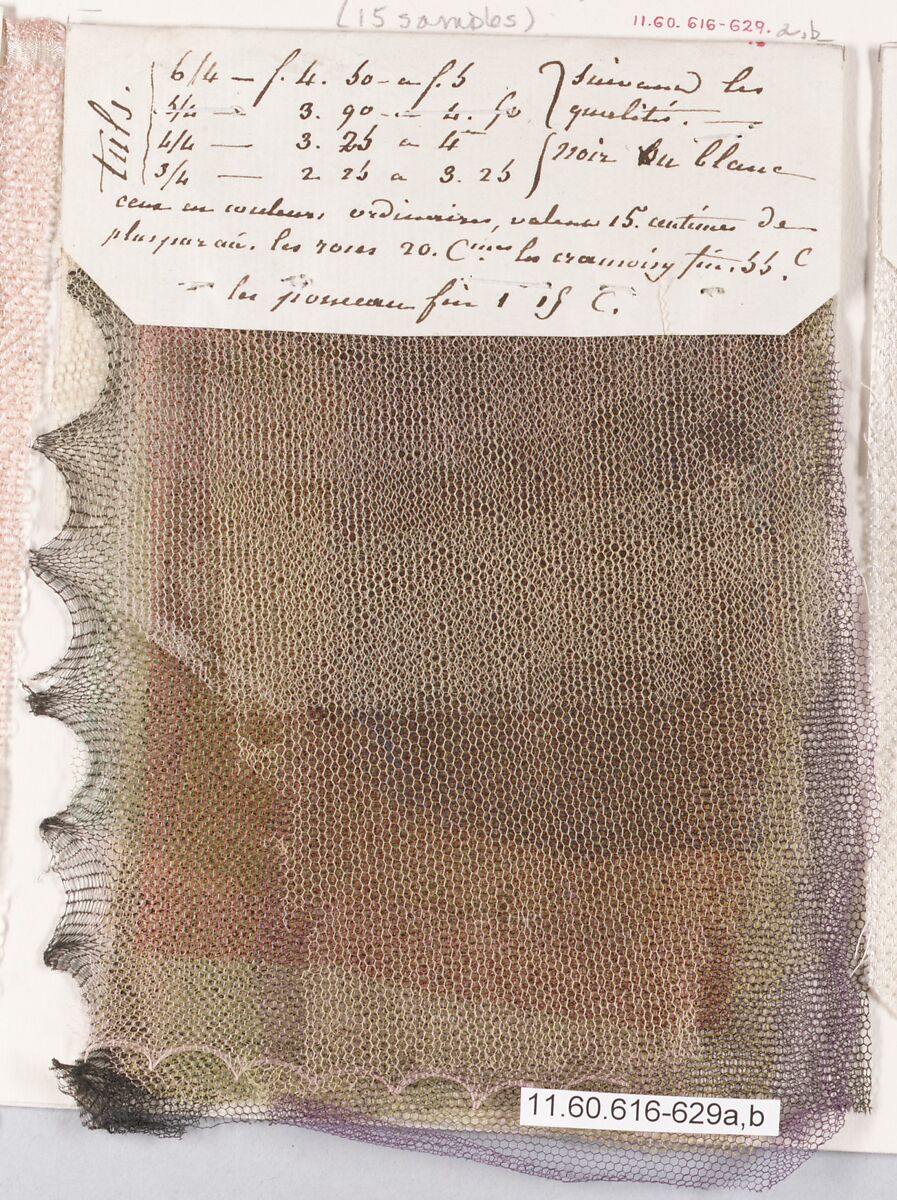 (15 samples)
11.60.616-629. a,b
tuls.
6/4 — f. 4. 50 a f. 5
5/4 — 3. 90 — 4. 50
} suivant les qualités. —
4/4 — 3. 25 a 4
3/4 — 2. 25 a 3. 25
{ noir ou blanc
ceux en couleurs ordinaires, valent 15. centimes de
plus par au. les roses 20. Cmes les cramoisy fin. 55. C
les ponceau fin 1 15 C.
11.60.616-629a,b